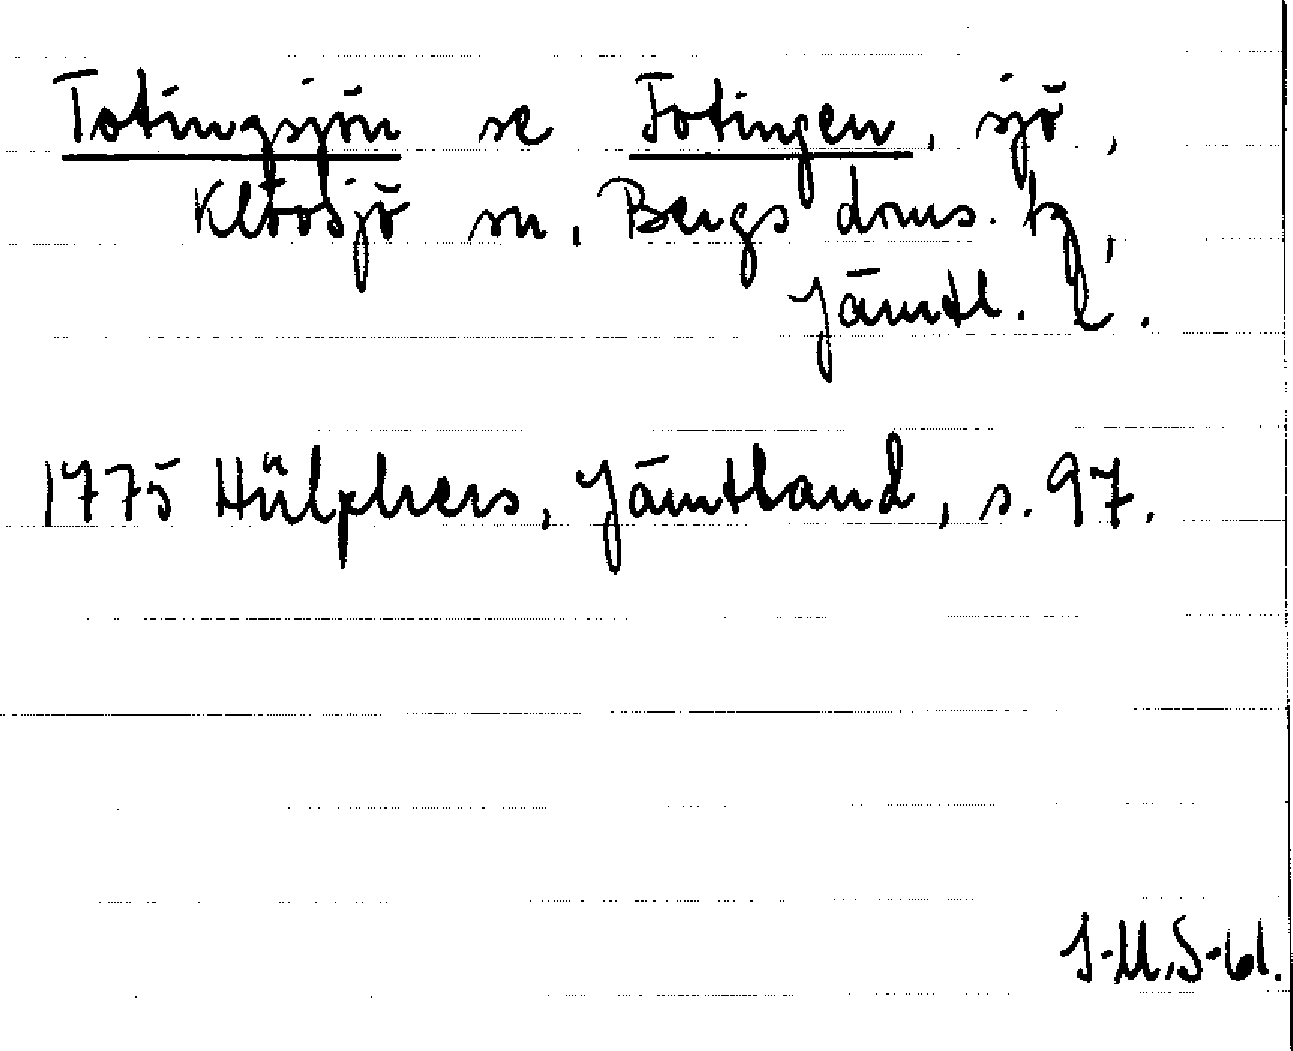 Totingsjön se Fotingen, sjö,
Klövsjö sn, Bergs doms. tg,
Jämtl. l.
1775 Hülphers, Jämtland, s. 97.